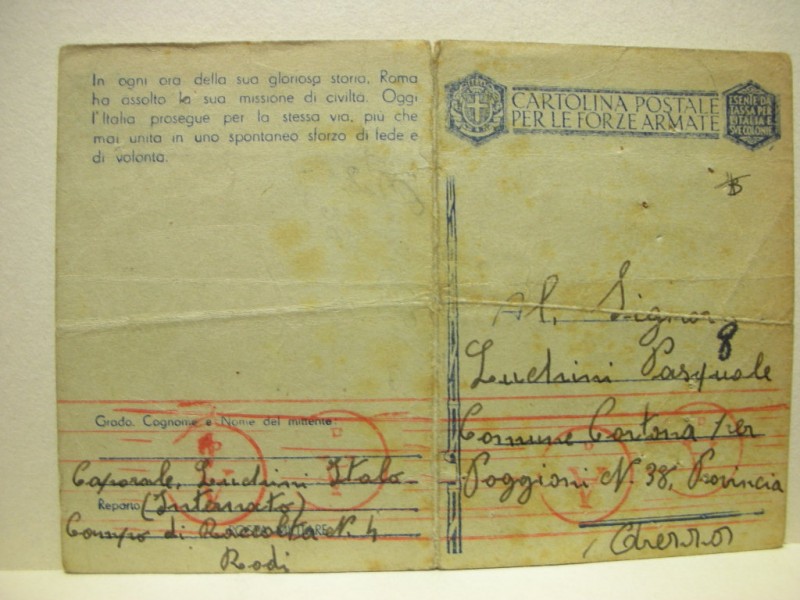 In ogni ora della sua gloriosa storia, Roma
ha assolto la sua missione di civiltà. Oggi
l'Italia prosegue per la stessa via, più che
mai unita in uno spontaneo sforzo di fede e
di volontà.
Grado. Cognome e Nome del mittente:
Caporale, Luchini Italo
Reparto (Internato)
Campo di Raccolta N. 4
Rodi
CARTOLINA POSTALE
PER LE FORZE ARMATE
ESENTE DA
TASSA PER
L'ITALIA E
SUE COLONIE
Al, Signor
8
Luchini Pasquale
Comune Cortona per
Poggioni N. 38, Provincia